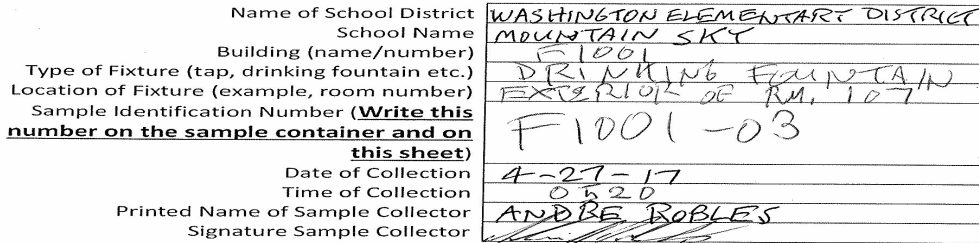 Name of School District WASHINGTON ELEMENTARY DISTRICT
School Name MOUNTAIN SKY
Building (name/number) F1001
Type of Fixture (tap, drinking fountain etc.) DRINKING FOUNTAIN
Location of Fixture (example, room number) EXTERIOR OF RM. 107
Sample Identification Number (Write this
number on the sample container and on
this sheet) F1001-03
Date of Collection 4-27-17
Time of Collection 0520
Printed Name of Sample Collector ANDRE ROBLES
Signature Sample Collector